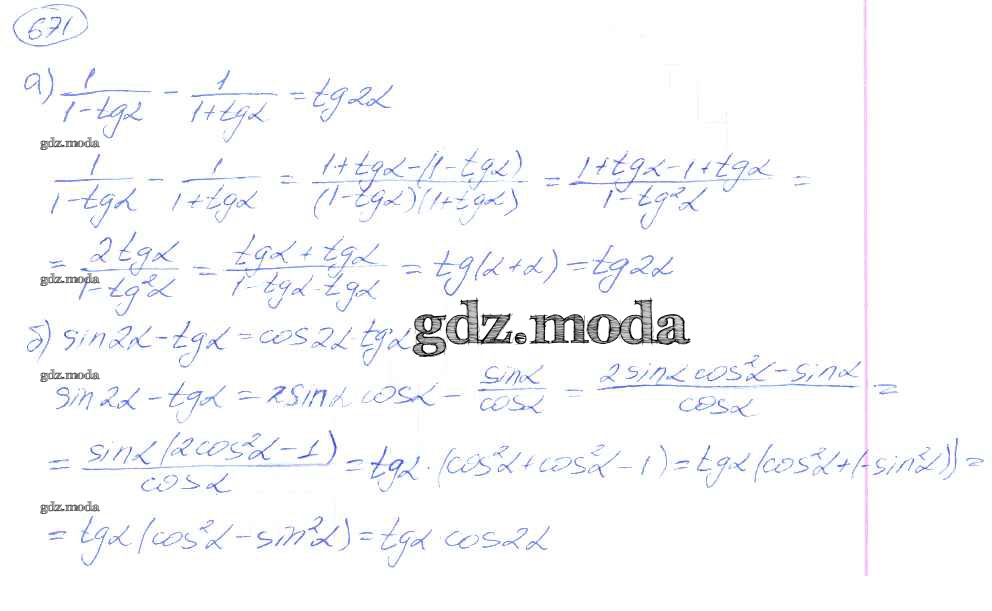 671
а) 1/(1-tgα) - 1/(1+tgα) = tg2α
gdz.moda
1/(1-tgα) - 1/(1+tgα) = (1+tgα-(1-tgα))/((1-tgα)(1+tgα)) = (1+tgα-1+tgα)/(1-tg²α) =
= 2tgα/(1-tg²α) = (tgα+tgα)/(1-tgα·tgα) = tg(α+α) = tg2α
gdz.moda
gdz.moda
б) sin2α-tgα = cos2α·tgα
gdz.moda
sin2α-tgα = 2sinα cosα - sinα/cosα = (2sinα cos²α-sinα)/cosα =
= sinα(2cos²α-1)/cosα = tgα·(cos²α+cos²α-1) = tgα(cos²α+(-sin²α)) =
gdz.moda
= tgα(cos²α-sin²α) = tgα cos2α